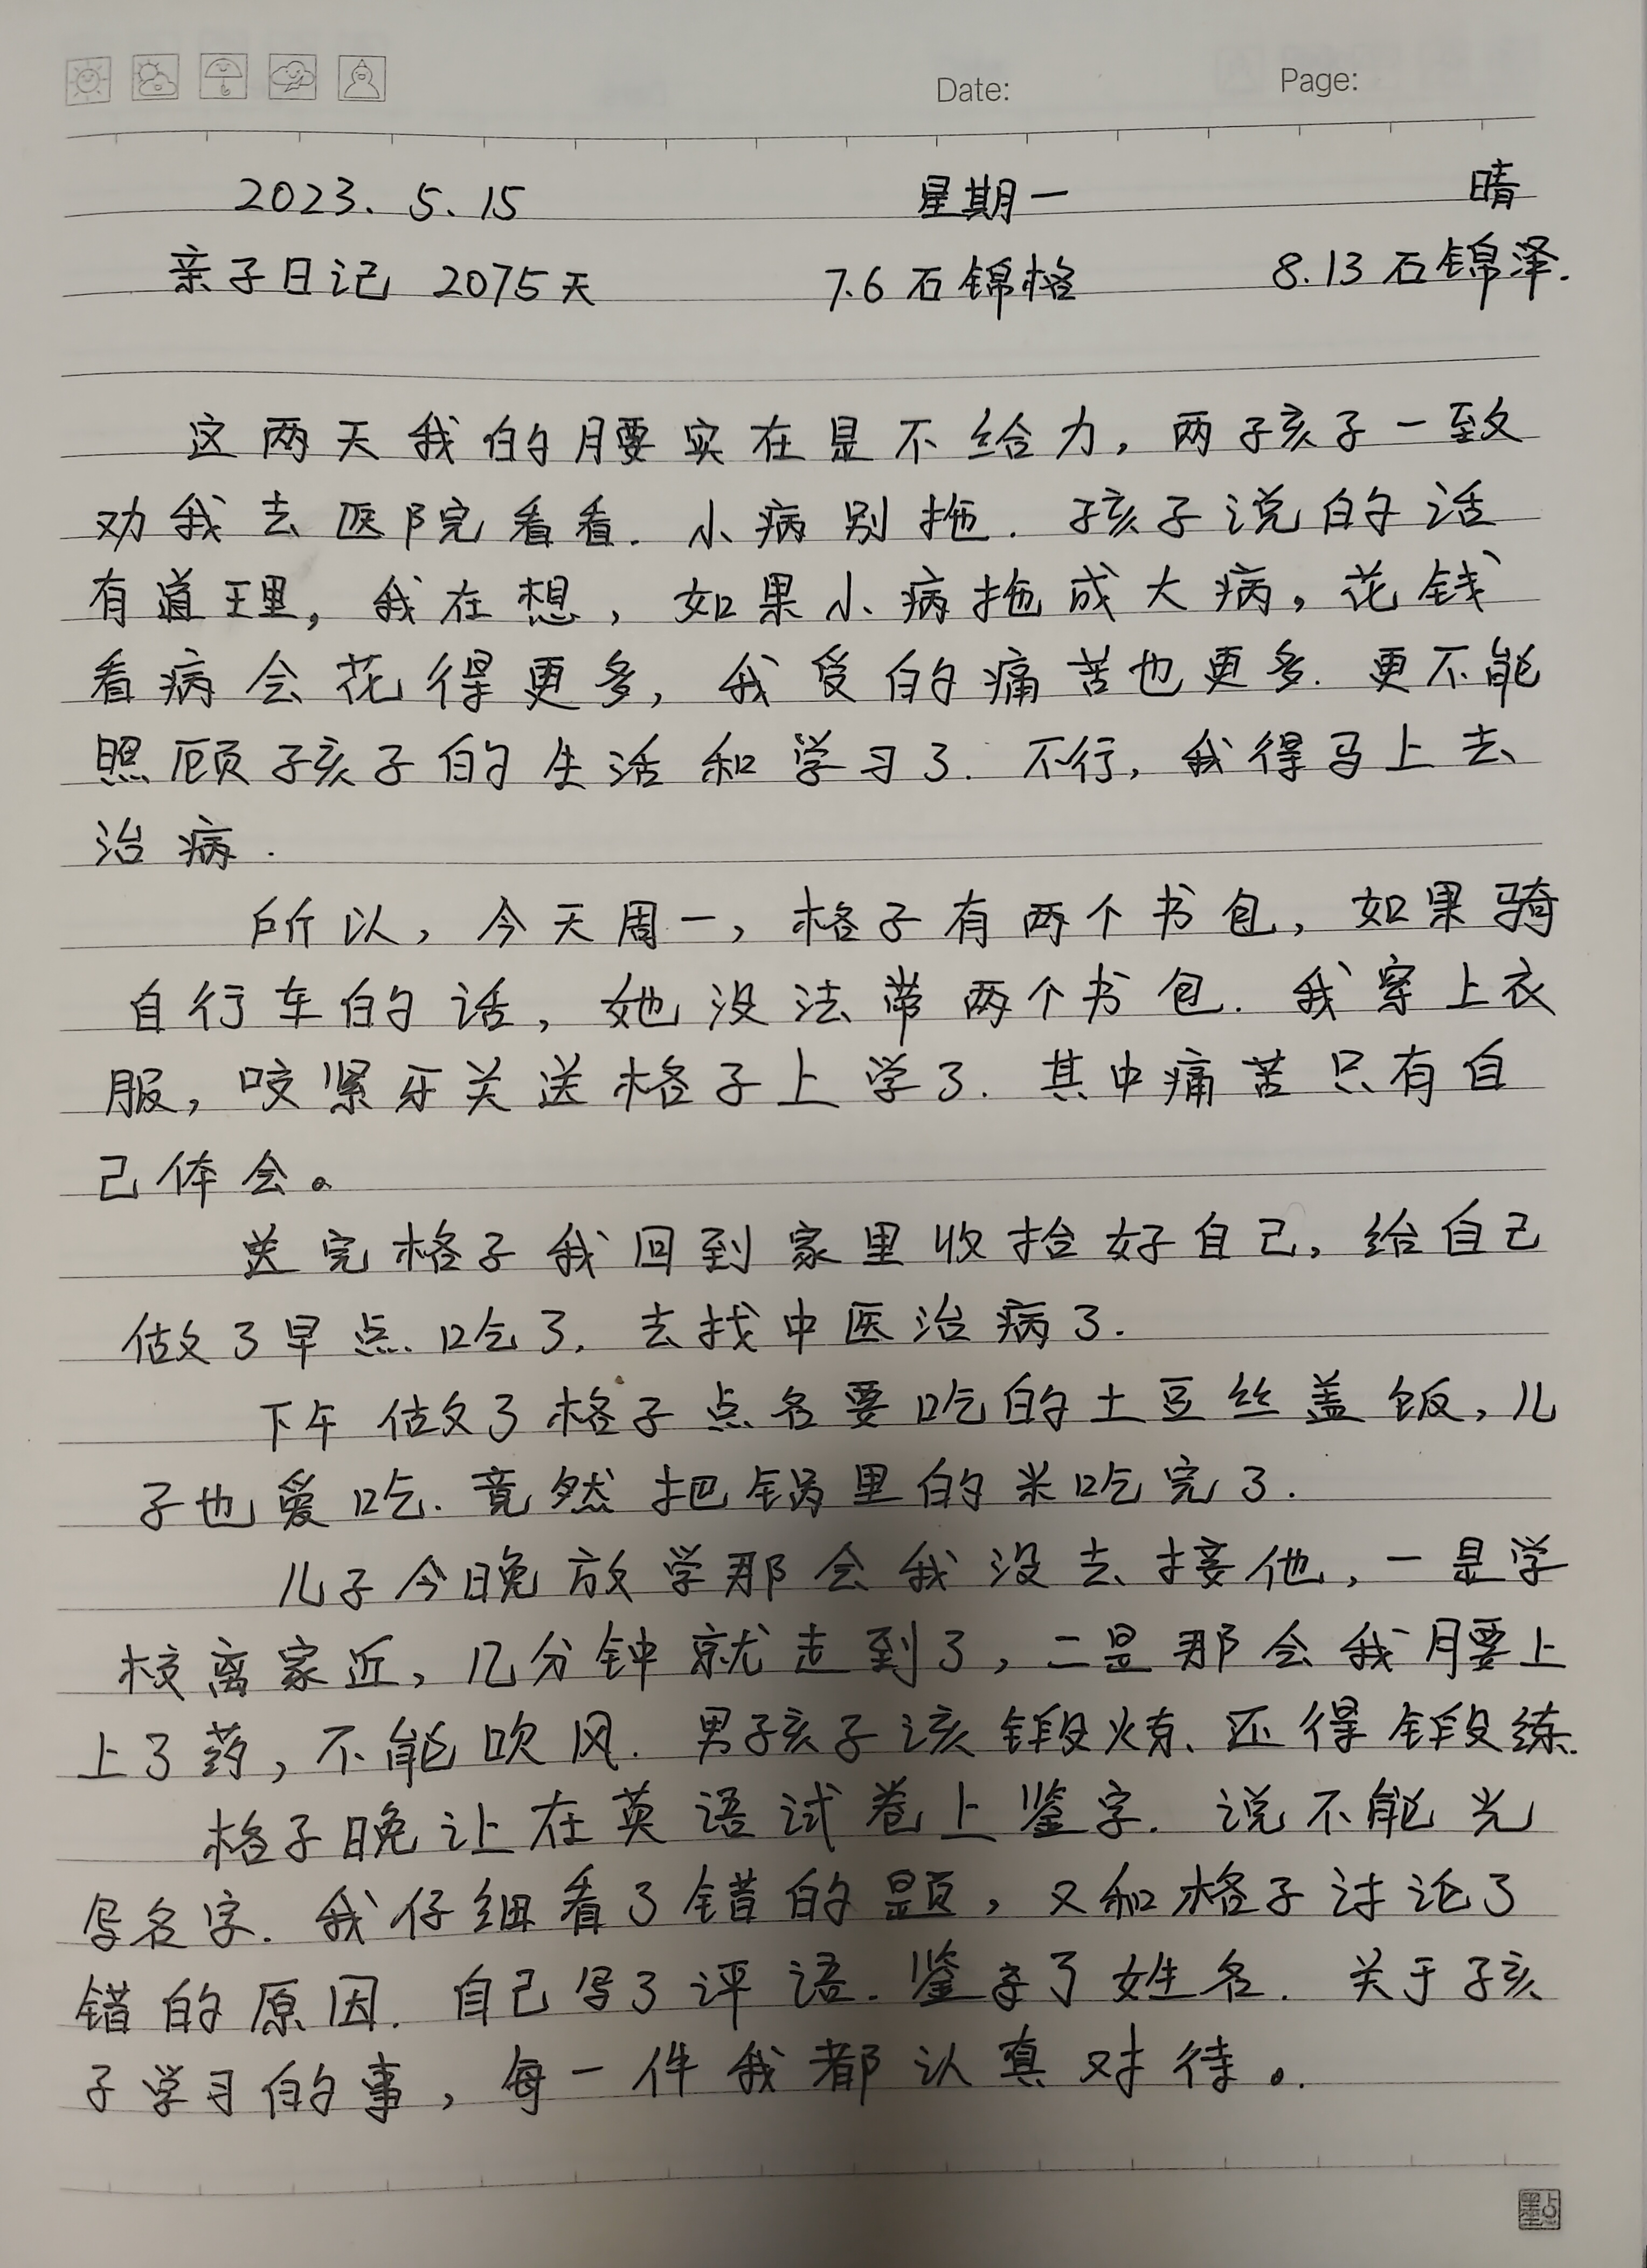 Date: Page:
2023. 5. 15 星期一 晴
亲子日记 2075天 7.6石锦格 8.13石锦泽.
这两天我的腰实在是不给力，两孩子一致
劝我去医院看看. 小病别拖. 孩子说的话
有道理，我在想，如果小病拖成大病，花钱
看病会花得更多，我受的痛苦也更多. 更不能
照顾孩子的生活和学习了. 不行，我得马上去
治病.
所以，今天周一，格子有两个书包，如果骑
自行车的话，她没法带两个书包. 我穿上衣
服，咬紧牙关送格子上学了. 其中痛苦只有自
己体会。
送完格子我回到家里收拾好自己，给自己
做了早点、吃了. 去找中医治病了.
下午做了格子点名要吃的土豆丝盖饭，儿
子也爱吃. 竟然把锅里的米吃完了.
儿子今晚放学那会我没去接他，一是学
校离家近，几分钟就走到了，二是那会我腰上
上了药，不能吹风. 男孩子该锻炼、还得锻练.
格子晚让在英语试卷上鉴字. 说不能光
写名字. 我仔细看了错的题，又和格子讨论了
错的原因. 自己写了评语. 鉴字了姓名. 关于孩
子学习的事，每一件我都认真对待。.
墨点